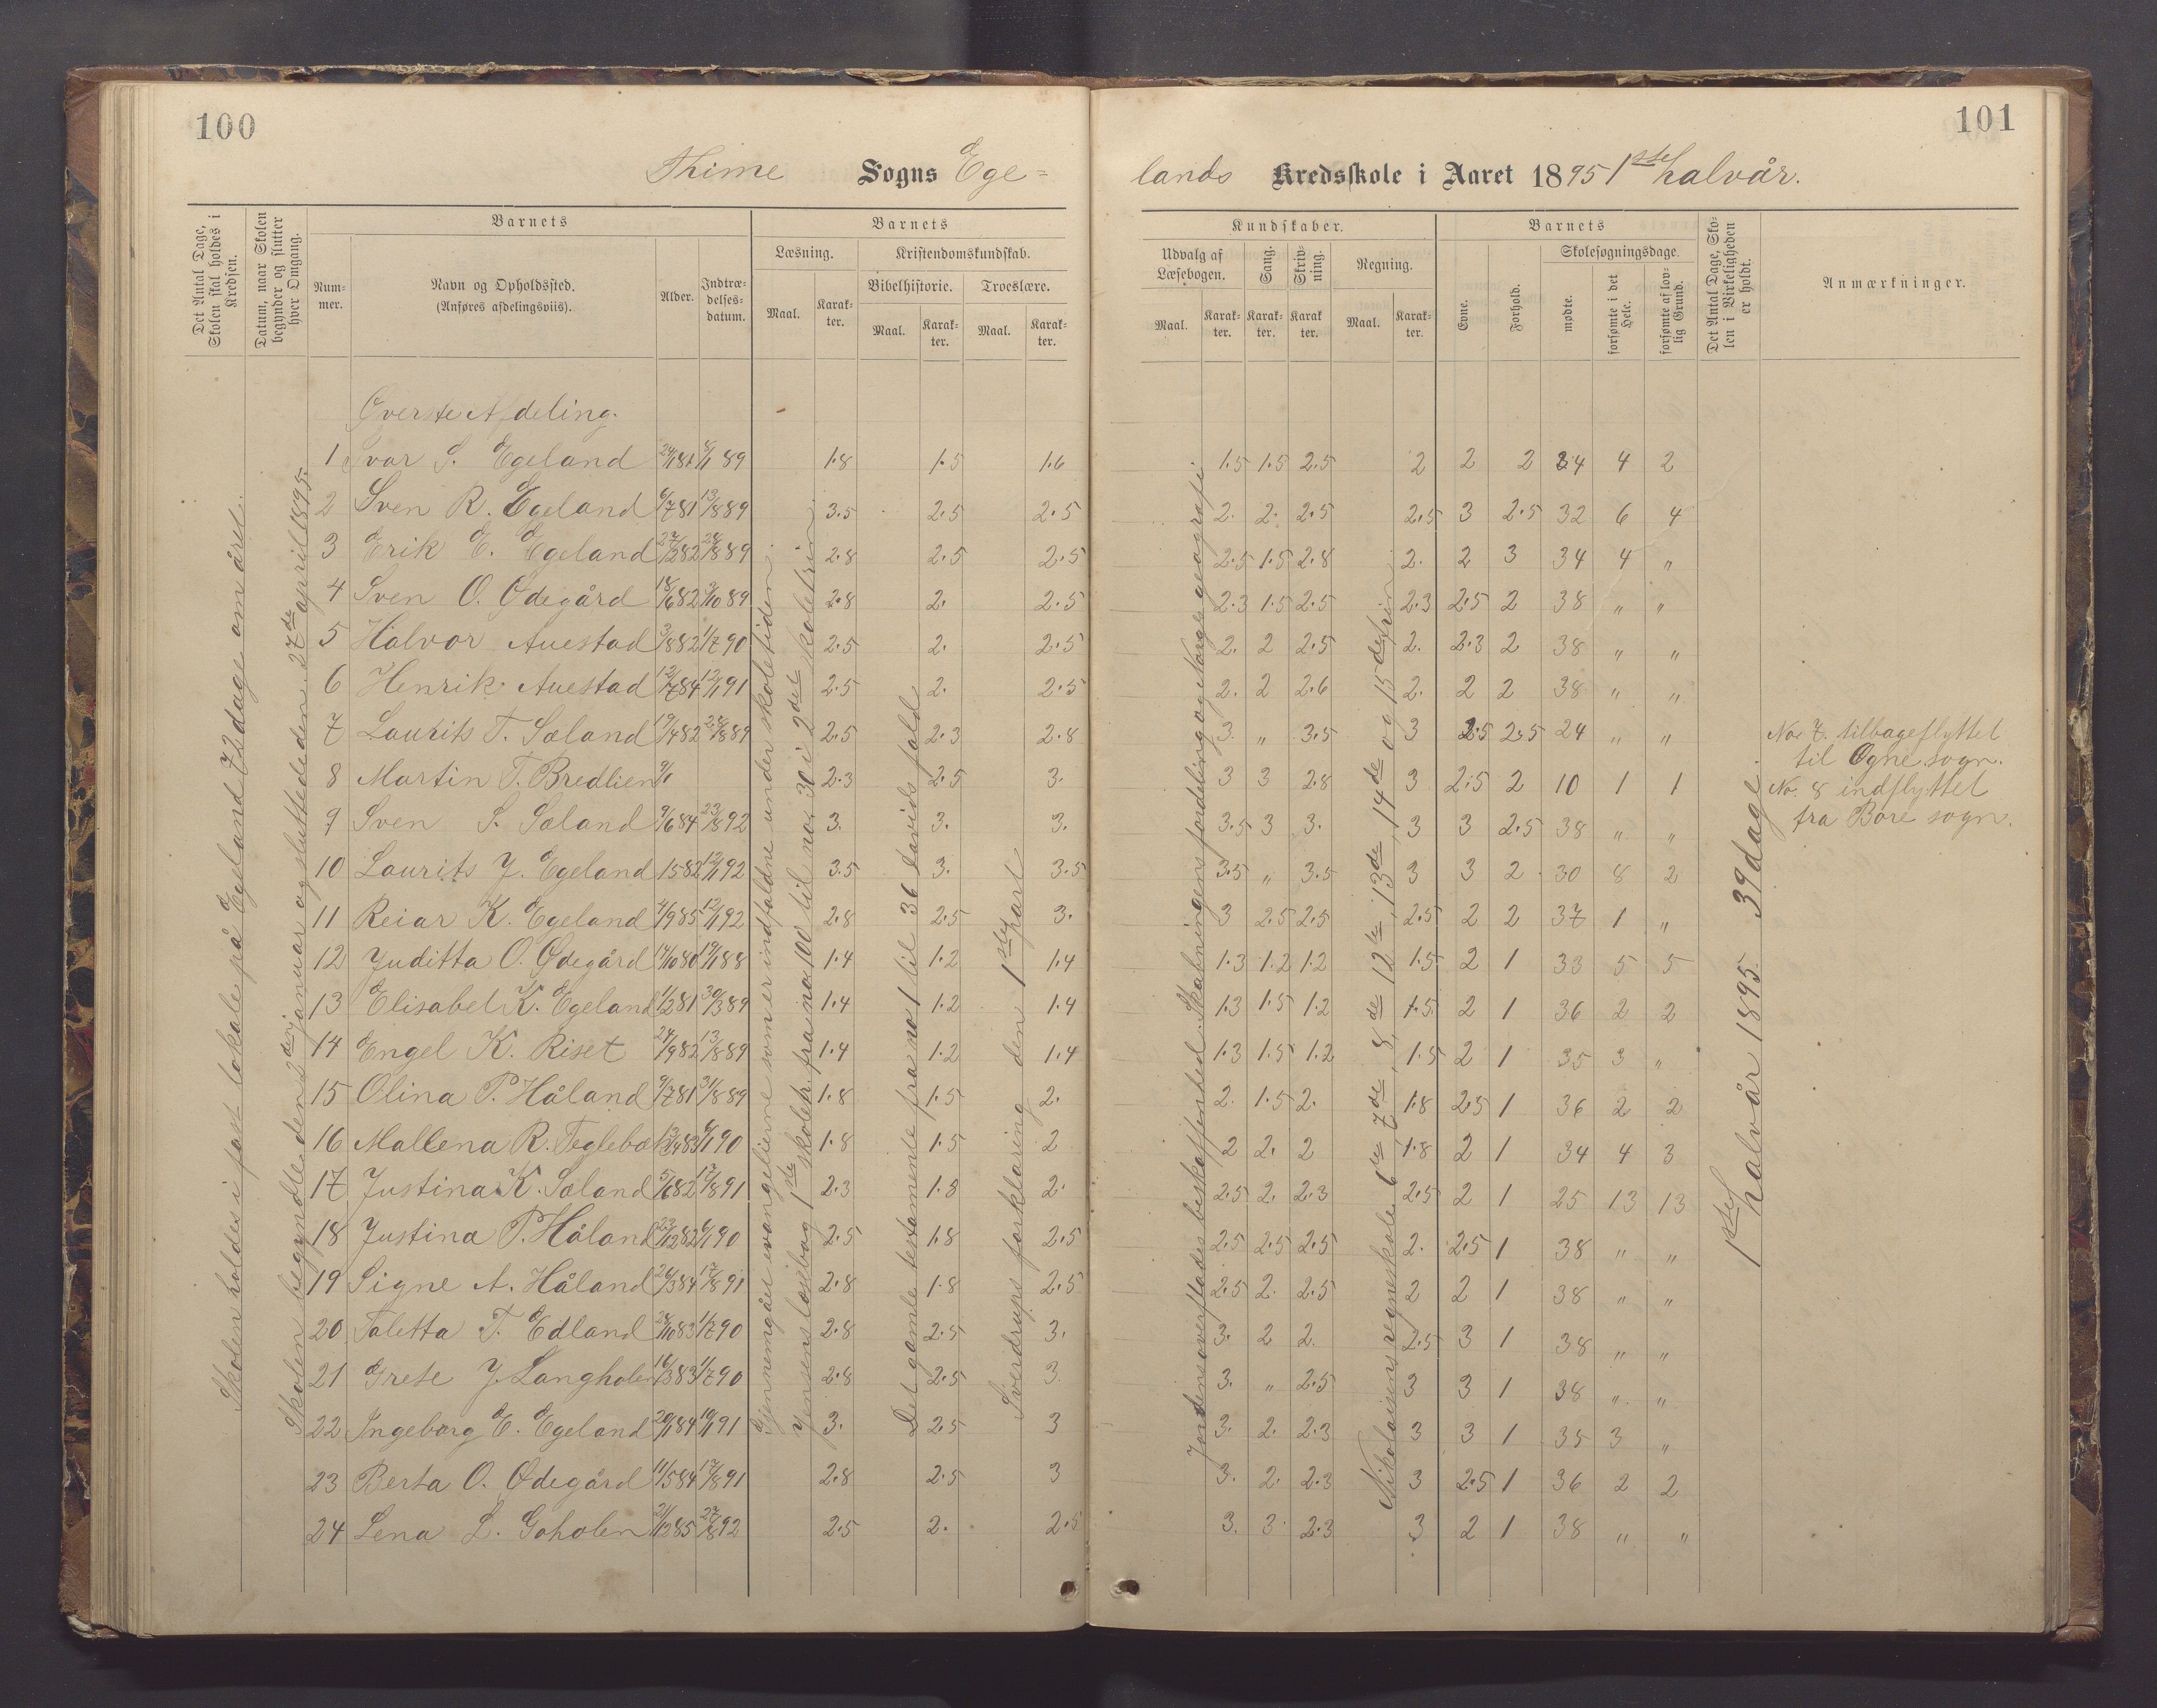 100
Thime Sogns Ege=
Det Antal Dage, Skolen skal holdes i Kredsen.
Datum, naar Skolen begynder og slutter hver Omgang.
Barnets
Nummer.
Navn og Opholdssted.
(Anføres afdelingsviis).
Alder.
Indtrædelsesdatum.
Barnets
Læsning.
Maal.
Karakter.
Kristendomskundskab.
Bibelhistorie.
Maal.
Karakter.
Troeslære.
Maal.
Karakter.
Skolen holdes i fast lokale på Egeland 72 dage om året.
Skolen begyndte den 2den januar og sluttede den 27de april 1895.
Gjennemgået evangelierne som er indfaldne under skoletiden.
Jensens læsebog 1ste skoleh. fra no 100 til no 30 i 2det skoletrin
Det gamle testamente fra no 1 til 36 Davids fald
Sverdrups forklaring den 1ste part
Øverste Afdeling.
1 Ivar S. Egeland 8/1 89 1.8 1.5 1.6
2 Sven R. Egeland 6/7 81 13/8 89 3.5 2.5 2.5
3 Erik E. Egeland 27/2 82 28/8 89 2.8 2.5 2.5
4 Sven O. Ødegård 18/6 82 3/10 89 2.8 2. 2.5
5 Halvor Auestad 3/8 82 1/7 90 2.5 2. 2.5
6 Henrik Auestad 12/7 84 12/1 91 2.5 2. 2.5
7 Laurits T. Sæland 19/4 82 28/8 89 2.5 2.3 2.8
8 Martin T. Bredlien 9/1 2.3 2.5 3.
9 Sven S. Sæland 9/6 84 23/8 92 3. 3. 3.
10 Laurits J. Egeland 1582 12/1 92 3.5 3. 3.5
11 Reiar K. Egeland 4/9 85 12/1 92 2.8 2.5 3.
12 Juditta O. Ødegård 14/10 80 19/1 88 1.4 1.2 1.4
13 Elisabet K. Egeland 1/2 81 30/3 89 1.4 1.2 1.4
14 Engel K. Riset 24/9 82 13/8 89 1.4 1.2 1.4
15 Olina P. Håland 9/7 81 31/8 89 1.8 1.5 2.
16 Mallena R. Teglebo 6/1 90 1.8 1.5 2
17 Justina K. Sæland 5/6 82 17/8 91 2.3 1.8 2.
18 Justina P. Håland 23/12 82 6/1 90 2.5 1.8 2.5
19 Signe A. Håland 26/3 84 17/8 91 2.8 1.8 2.5
20 Taletta T. Edland 28/10 83 1/7 90 2.8 2.5 3.
21 Grete J. Langholen 16/3 83 1/7 90 2.8 2.5 3.
22 Ingeborg E. Egeland 20/1 84 19/1 91 3. 2.5 3
23 Berta O. Ødegård 11/5 84 17/8 91 2.8 2.5 3
24 Lena L. Goholen 21/2 85 27/8 92 2.5 2. 2.5
101
lands Kredsskole i Aaret 1895 1ste halvår.
Kundskaber.
Udvalg af Læsebogen.
Maal.
Karakter.
Sang.
Karakter.
Skrivning.
Karakter.
Regning.
Maal.
Karakter.
Barnets
Evne.
Forhold.
Skolesøgningsdage.
mødte.
forsømte i det Hele.
forsømte af lovlig Grund.
Det Antal Dage, Skolen i Virkeligheden er holdt.
Anmærkninger.
Jordens overflades beskaffenhed. Skabningens fordeling og Norges geografi.
Nikolaisens regneskole 6te 7de, 8de 12te, 13de, 14de og 15de trin
1ste halvår 1895 39 dage.
1.5 1.5 2.5 2 2 2 34 4 2
2. 2. 2.5 2.5 3 2.5 32 6 4
2.5 1.5 2.8 2. 2 3 34 4 "
2.3 1.5 2.5 2.3 2.5 2 38 " "
2. 2 2.5 2. 2.3 2 38 " "
2. 2 2.6 2. 2 2 38 " "
3. " 3.5 3 2.5 2.5 24 " "
3 3 2.8 3 2.5 2 10 1 1
3.5 3 3. 3 3 2.5 38 " "
3.5 " 3.5 3 3 2 30 8 2
3 2.5 2.5 2.5 2 2 37 1 "
1.3 1.2 1.2 1.5 2 1 33 5 5
1.3 1.5 1.2 1.5 2 1 36 2 2
1.3 1.5 1.2 1.5 2 1 35 3 "
2. 1.5 2. 1.8 2.5 1 36 2 2
2 2. 2 1.8 2 1 34 4 3
2.5 2. 2.3 2.5 2 1 25 13 13
2.5 2.5 2.5 2. 2.5 1 38 " "
2.5 2. 2.5 2 2 1 38 " "
3. 2 2. 2.5 3 1 38 " "
3. " 2.5 3 3 1 38 " "
3. 2. 2.3 3 3 1 35 3 "
3. 2. 2.3 3 2.5 1 36 2 2
3. 3. 2.3 3 2 1 38 " "
No. 7. tilbageflyttet
til Ogne sogn.
No. 8 indflyttet
fra Bore sogn.